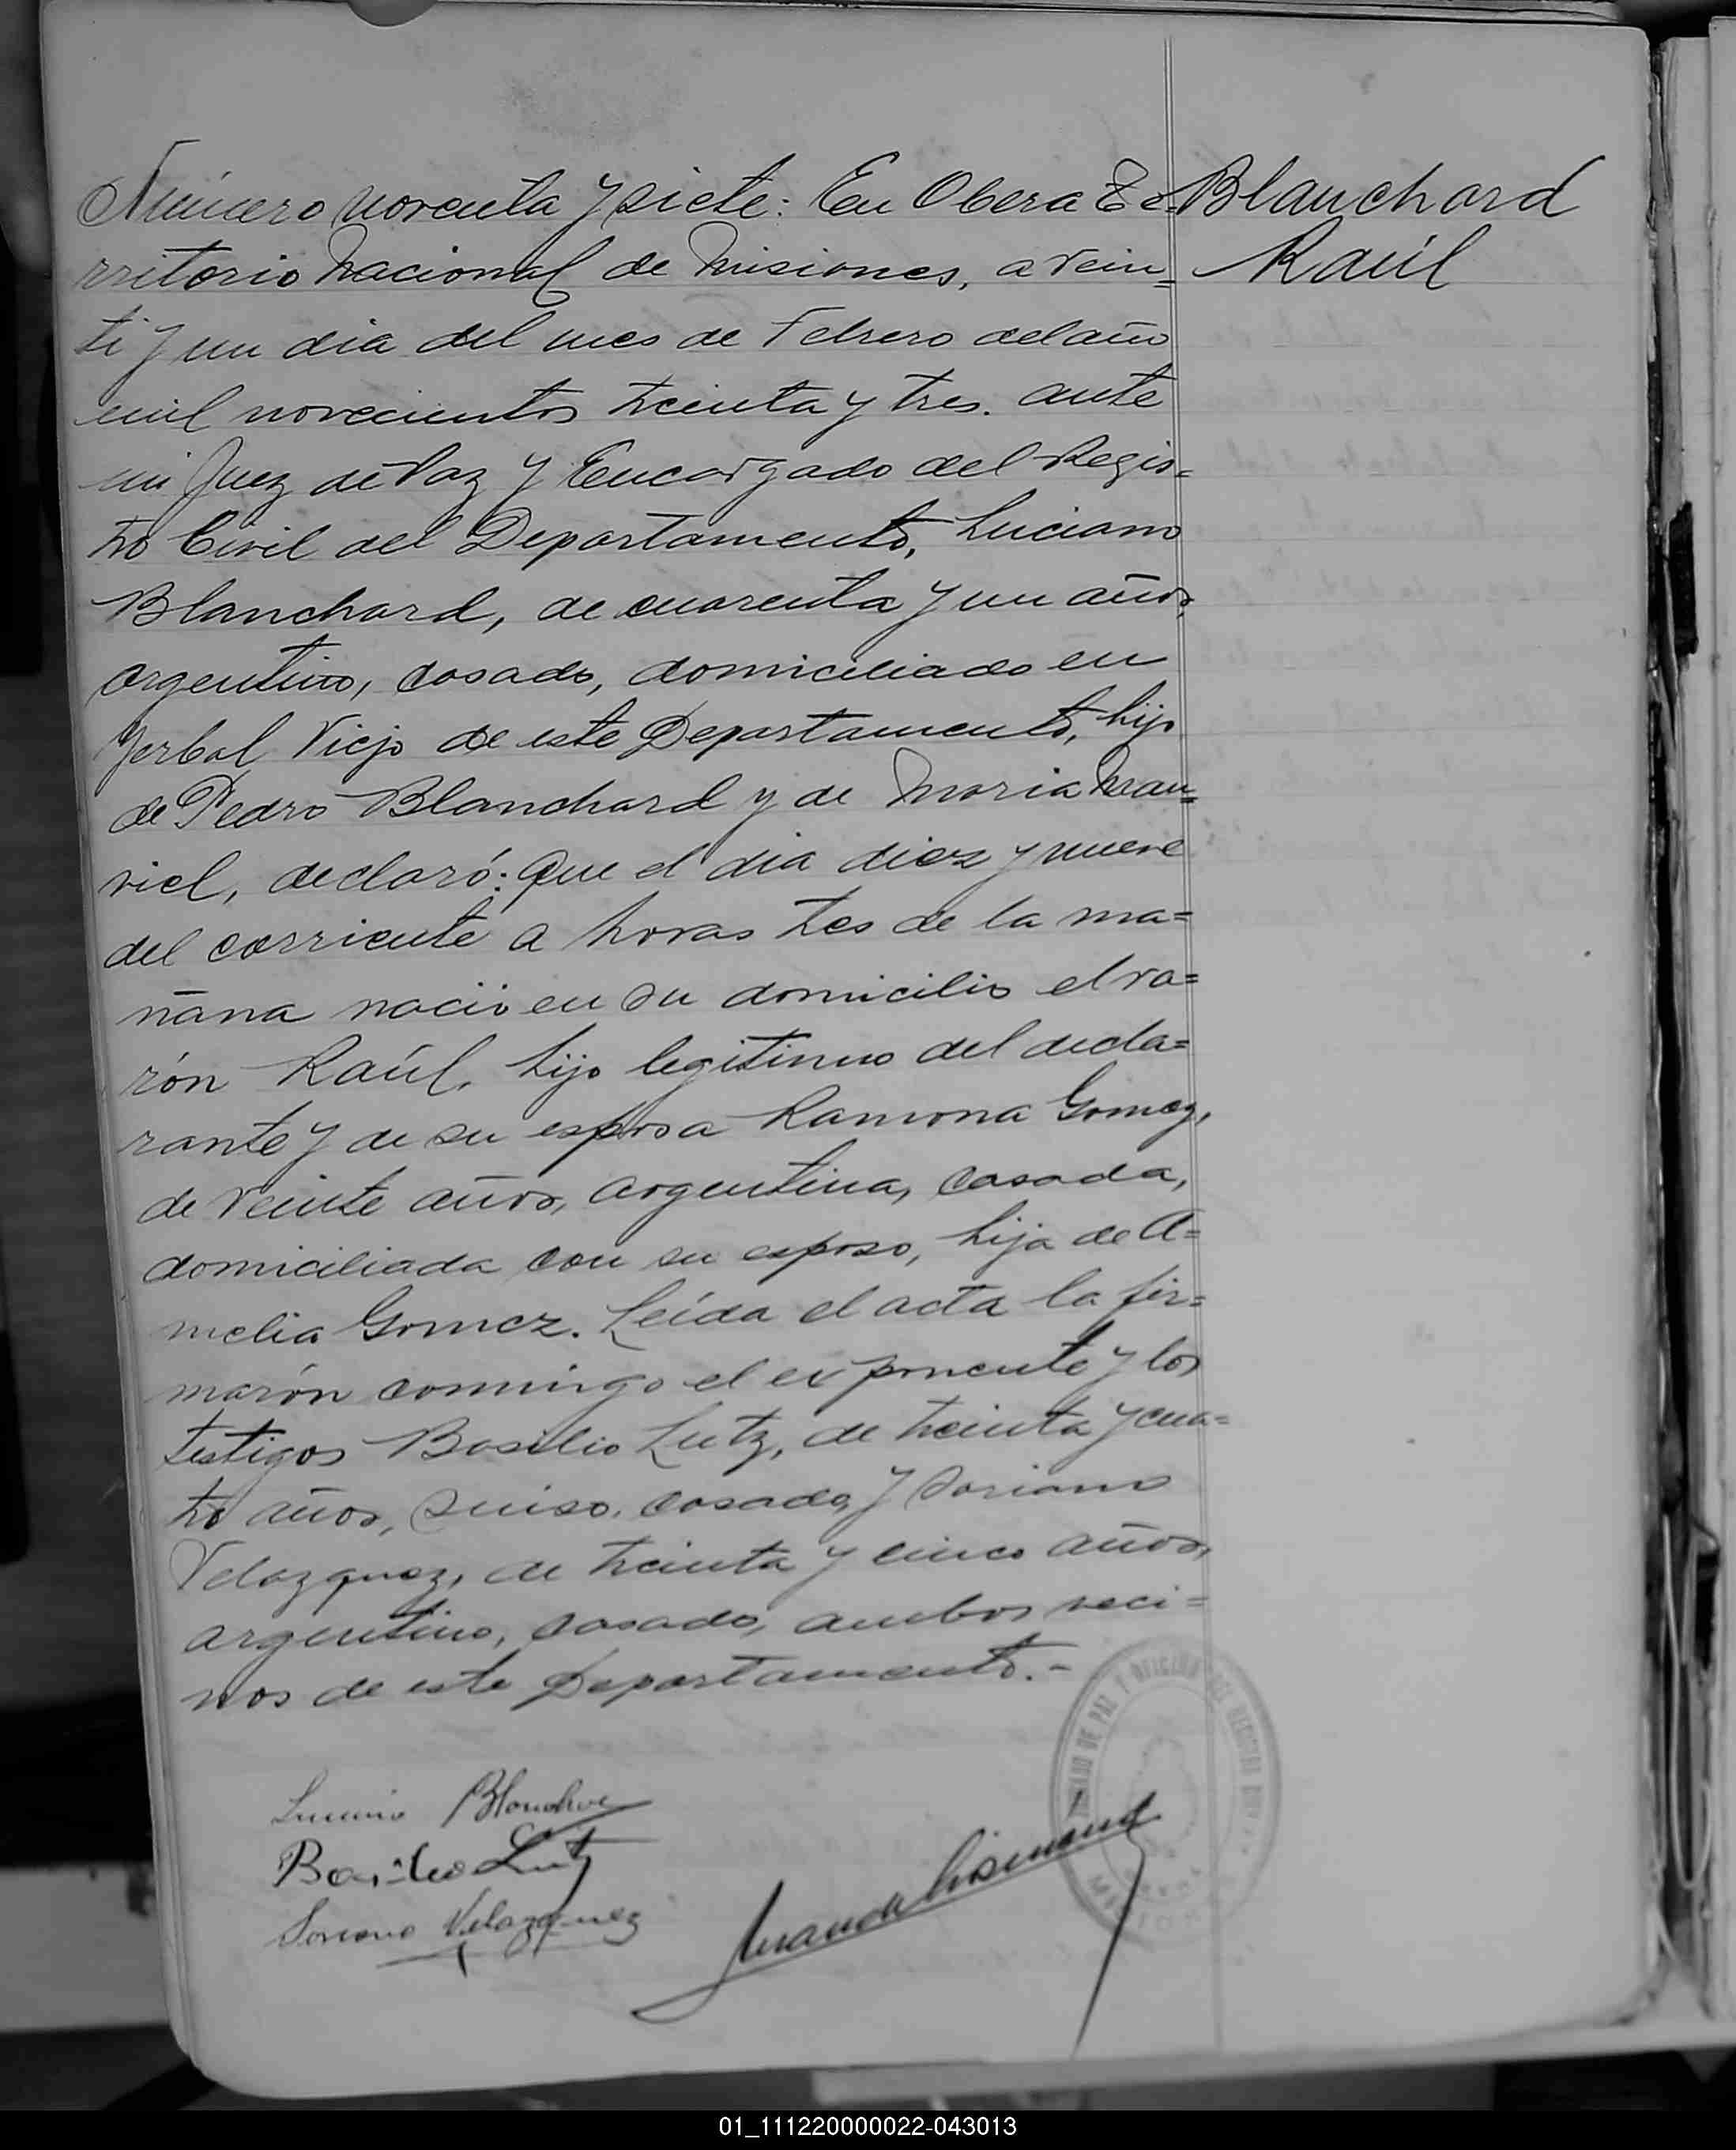 Número noventa y siete: En Obera Te=
rritorio Nacional de Misiones, a vein=
ti y un dia del mes de Febrero del año
mil novecientos treinta y tres. ante
mi Juez de Paz y Encargado del Regis=
tro Civil del Departamento, Luciano
Blanchard, de cuarenta y un años,
argentino, casado, domiciliado en
Yerbal Viejo de este Departamento, hijo
de Pedro Blanchard y de Maria Mau=
riel, declaró: que el dia diez y nueve
del corriente a horas tres de la ma=
ñana nació en su domicilio el va=
rón Raúl, hijo legitimo del decla=
rante y de su esposa Ramona Gomez,
de veinte años, argentina, casada,
domiciliada con su esposo, hija de A=
melia Gomez. Leída el acta la fir=
marón conmigo el exponente y los
testigos Basilio Lutz, de treinta y cua=
tro años, suiso, casado, y Soriano
Velazquez, de treinta y cinco años,
argentino, casado, ambos veci=
nos de este Departamento.-
Blanchard
Raúl
Luciano Blanchar
Basileo Lutz
Soriano Velazquez
JUZGADO DE PAZ Y OFICINA DEL REGISTRO CIVIL
MISIONES
01_111220000022-043013